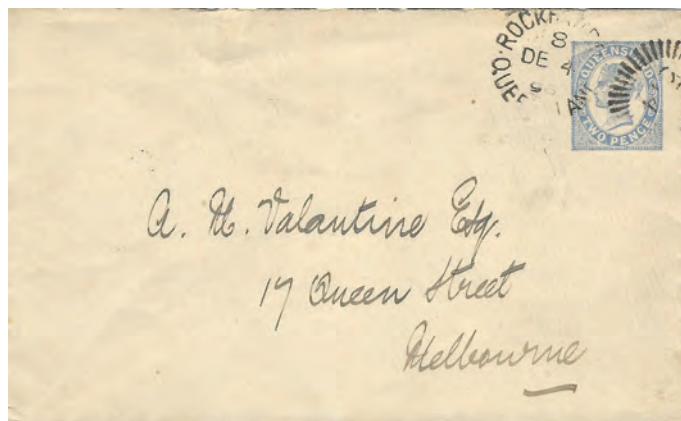 ROCKH
QUEE
8
DE 4
1 AM
QUEENSLAND
TWO PENCE
A. M. Valantine Esq.
17 Queen Street
Melbourne